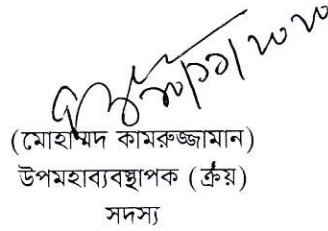 /১১/২০২০
(মোহাম্মদ কামরুজ্জামান)
উপমহাব্যবস্থাপক (ক্রয়)
সদস্য